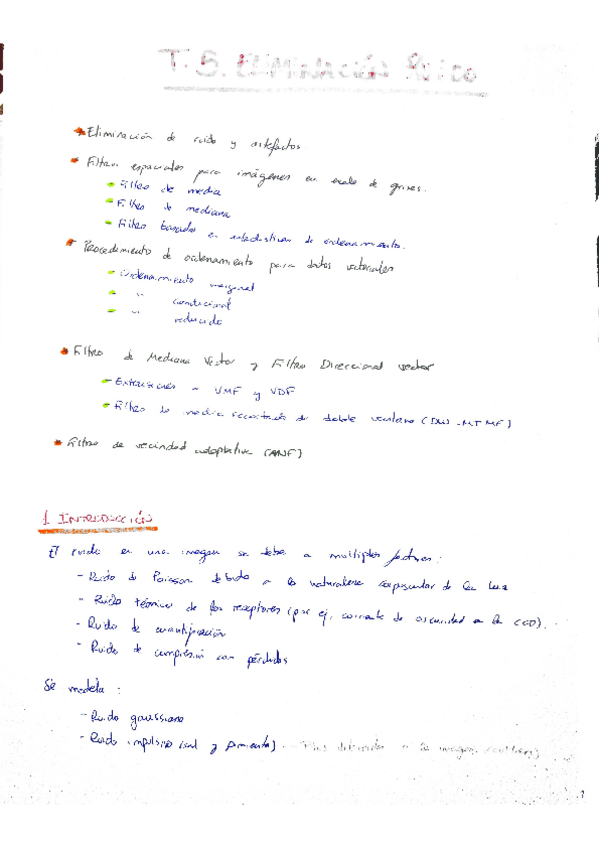 T.5. ELIMINACIÓN RUIDO
Eliminación de ruido y artefactos.
Filtros espaciales para imágenes en escala de grises.
- Filtro de media
- Filtro de mediana
- Filtro basados en estadísticas de ordenamiento.
Procedimiento de ordenamiento para datos vectoriales
- Ordenamiento marginal
- " condicional
- " reducido
Filtro de Mediana Vector y Filtro Direccional vector
- Extensiones a VMF y VDF
- Filtro de media recortada de doble ventana (DW-MTMF)
Filtro de vecindad adaptativa (ANF)
1 INTRODUCCIÓN
El ruido en una imagen se debe a múltiples factores:
- Ruido de Poisson debido a la naturaleza corpuscular de la luz
- Ruido térmico de los receptores (por ej, corriente de oscuridad en la CCD).
- Ruido de cuantificación
- Ruido de compresión con pérdidas
Se modela :
- Ruido gaussiano
- Ruido impulsivo (sal y pimienta)
1